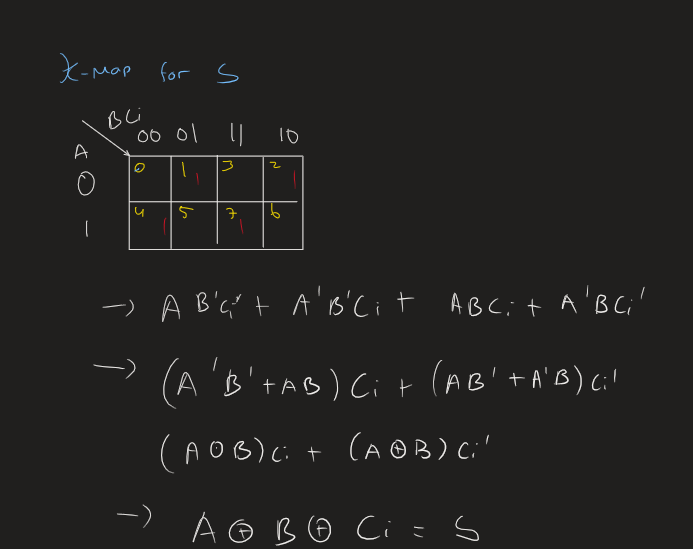 K-map for S
BCi
00 01 11 10
A
0 0 1 1 3 2 1
1 4 1 5 7 1 6
→ A B'Ci' + A'B'Ci + ABCi + A'BCi'
→ (A'B' + AB) Ci + (AB' + A'B) Ci'
(A⊙B)Ci + (A⊕B) Ci'
→ A ⊕ B ⊕ Ci = S